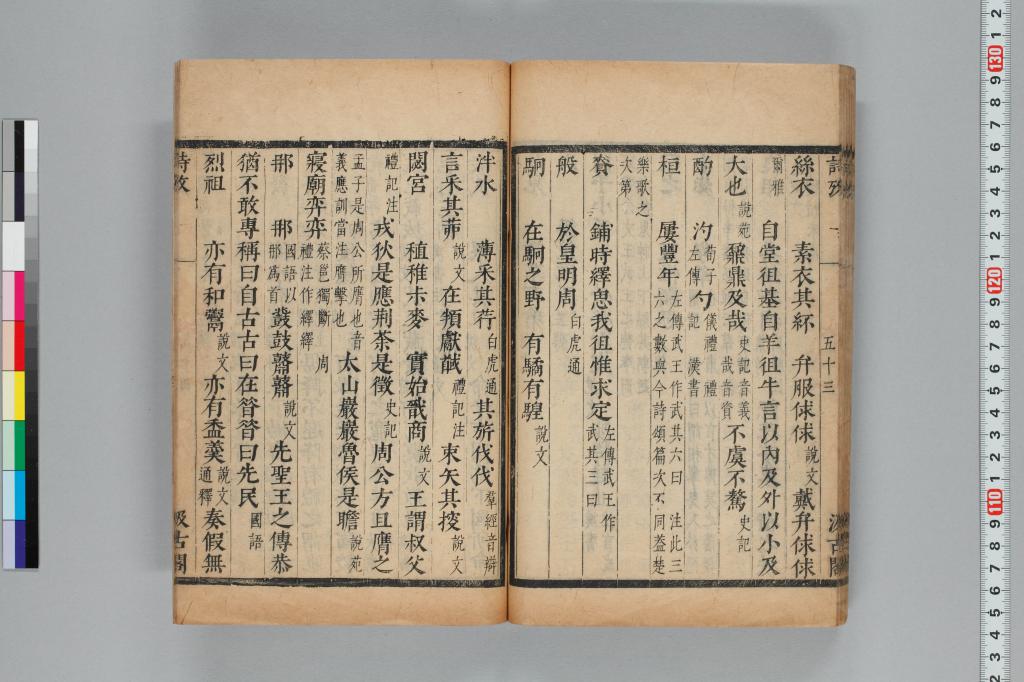 詩攷 五十三 汲古閣
絲衣 素衣其紑 弁服俅俅說文戴弁俅俅
爾雅 自堂徂基自羊徂牛言以內及外以小及
大也說苑鼐鼎及哉史記音義哉音資不虞不驁史記
酌 汋荀子左傳勺儀禮記 禮漢書
桓 屢豐年左傳武王作武其六曰 注此三六之數與今詩頌篇次不同蓋楚
樂歌之次第
賚 鋪時繹思我徂惟求定左傳武王作武其三曰
般 於皇明周白虎通
駉 在駉之野 有驕有騜說文
泮水 薄采其荇白虎通其旂伐伐羣經音辯
言采其茆說文在頖獻馘禮記注束矢其㨔說文
閟宮 稙稚尗麥 實始戩商說文王謂叔父
禮記注戎狄是應荊荼是徵史記周公方且膺之
孟子是周公所膺也音義應訓當注膺擊也 太山巖巖魯侯是瞻說苑
寢廟弈弈蔡邕獨斷 周禮注作繹繹
那 𨚗國語以那爲首鼗鼓鼘鼘說文先聖王之傳恭
猶不敢專稱曰自古古曰在昝昝曰先民國語
烈祖 亦有和鬻說文亦有盉羹說文通釋奏假無
詩攷 汲古閣